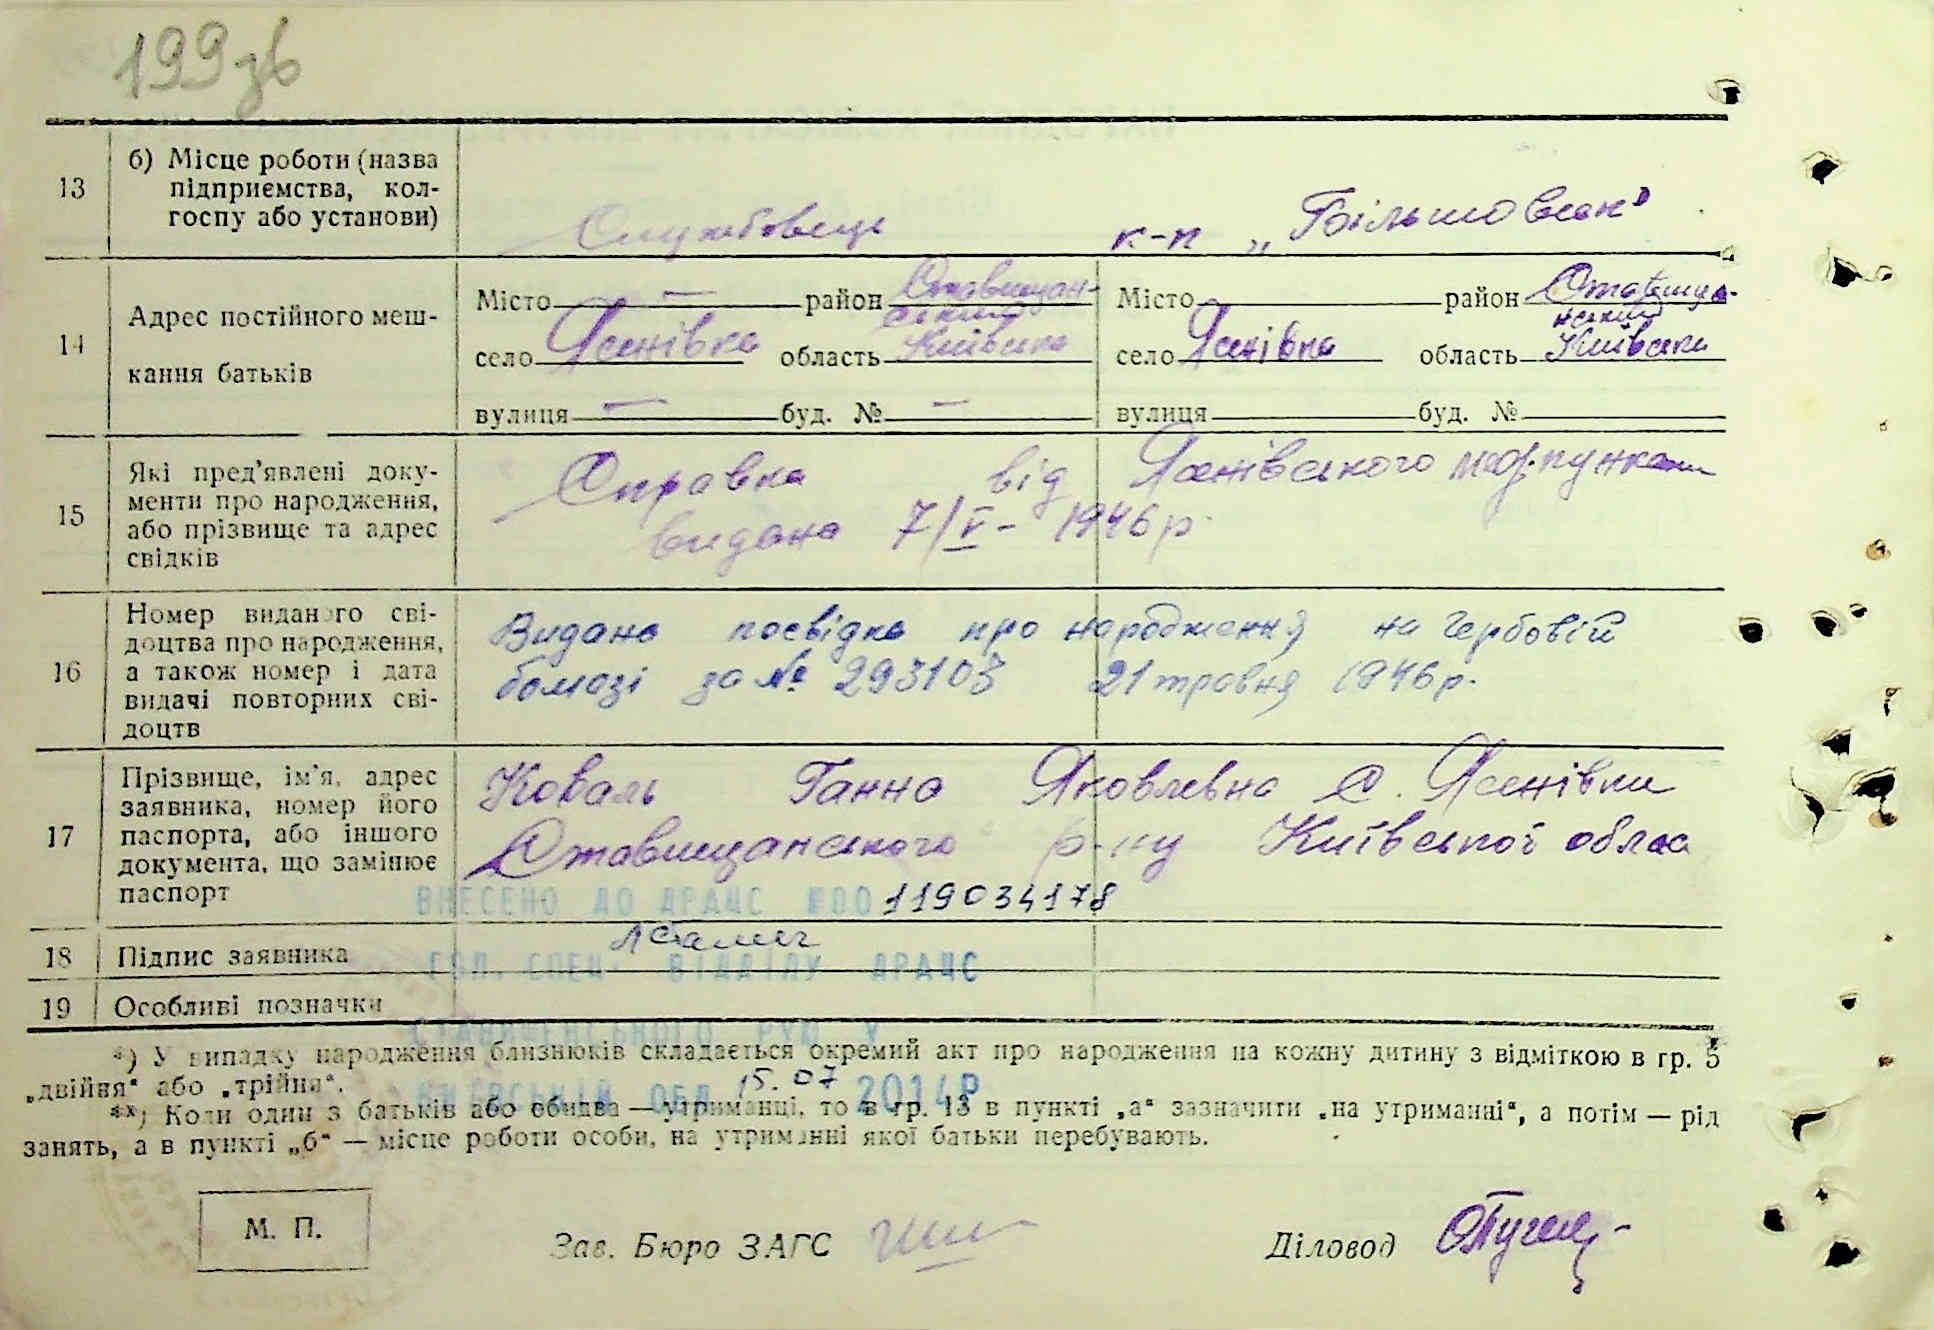 199зв
13 б) Місце роботи (назва
підприємства, кол-
госпу або установи)
Службовець к-п „Більшовик"
14 Адрес постійного меш-
кання батьків
Місто — район Ставищан-
ський
село Ясенівка область Київська
вулиця — буд. № —
Місто район Ставища-
нський
село Ясенівка область Київська
вулиця буд. №
15 Які пред'явлені доку-
менти про народження,
або прізвище та адрес
свідків
Справка від Ясенівського медпункта
видана 7/V- 1946 р.
16 Номер виданого сві-
доцтва про народження,
а також номер і дата
видачі повторних сві-
доцтв
Видано посвідка про народження на гербовій
бомазі за № 293103 21 травня 1946 р.
17 Прізвище, ім'я, адрес
заявника, номер його
паспорта, або іншого
документа, що замінює
паспорт
Коваль Ганна Яковлевна с. Ясенівки
Ставищанського р-ну Київської облас
ВНЕСЕНО ДО ДРАЦС №00119034178
18 Підпис заявника
ГОЛ. СПЕЦ. ВІДДІЛУ ДРАЦС
19 Особливі позначки
СТАВИЩЕНСЬКОГО РУЮ У
*) У випадку народження близнюків складається окремий акт про народження на кожну дитину з відміткою в гр. 5
„двійня" або „трійня".
КИЇВСЬКІЙ ОБЛ 15.07 2014Р
**) Коли один з батьків або обидва — утриманці, то в гр. 13 в пункті „а" зазначити „на утриманні", а потім — рід
занять, а в пункті „б" — місце роботи особи, на утриманні якої батьки перебувають.
М. П.
Зав. Бюро ЗАГС Діловод